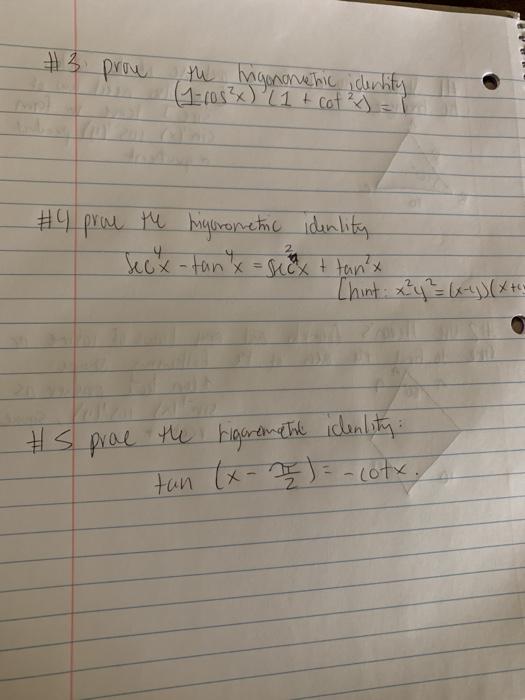 #3 prove the trigonometric identity
(1-cos²x) (1 + cot²x) = 1
#4 prove the trigonometric identity
sec⁴x - tan⁴x = sec²x + tan²x
[hint: x²y² = (x-y)(x+y
#5 prove the trigonometric identity:
tan (x - π/2) = -cotx.